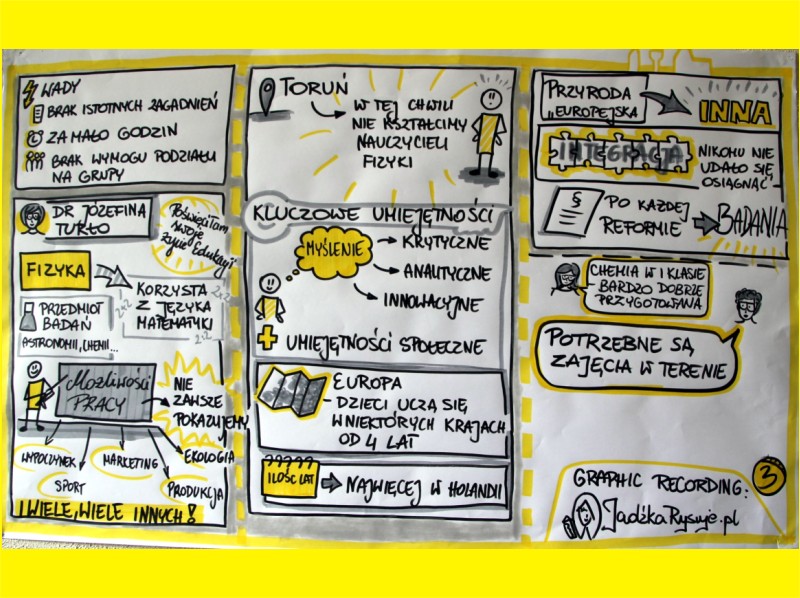 WADY
BRAK ISTOTNYCH ZAGADNIEŃ
ZA MAŁO GODZIN
BRAK WYMOGU PODZIAŁU
NA GRUPY
DR JÓZEFINA
TURŁO
Poświęciłam
swoje
życie Edukacji
FIZYKA
KORZYSTA
Z JĘZYKA
MATEMATYKI
2x2
2x2
2x2
PRZEDMIOT
BADAŃ
ASTRONOMII, CHEMII...
MOŻLIWOŚCI
PRACY
NIE
ZAWSZE
POKAZUJEMY
WYPOCZYNEK
MARKETING
EKOLOGIA
SPORT
PRODUKCJA
I WIELE, WIELE INNYCH!
TORUŃ
W TEJ CHWILI
NIE KSZTAŁCIMY
NAUCZYCIELI
FIZYKI
KLUCZOWE UMIEJĘTNOŚCI
MYŚLENIE
KRYTYCZNE
ANALITYCZNE
INNOWACYJNE
+ UMIEJĘTNOŚCI SPOŁECZNE
EUROPA
- DZIECI UCZĄ SIĘ
W NIEKTÓRYCH KRAJACH
OD 4 LAT
ILOŚĆ LAT
NAJWIĘCEJ W HOLANDII
PRZYRODA
„EUROPEJSKA
INNA
INTEGRACJA
NIKOMU NIE
UDAŁO SIĘ
OSIĄGNĄĆ"
§
PO KAŻDEJ
REFORMIE
BADANIA
CHEMIA W I KLASIE
- BARDZO DOBRZE
PRZYGOTOWANA
POTRZEBNE SĄ
ZAJĘCIA W TERENIE
3
GRAPHIC RECORDING:
JadźkaRysuje.pl